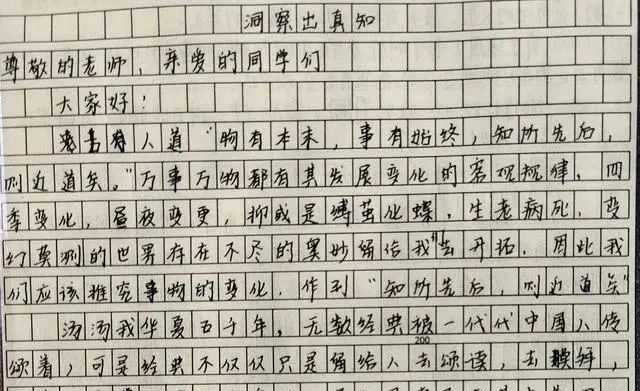 洞察出真知
尊敬的老师，亲爱的同学们
大家好！
人道"物有本末，事有始终，知所先后，
则近道矣。"万事万物都有其发展变化的客观规律，四
季变化，昼夜变更，抑或是缚茧化蝶，生老病死，变
幻莫测的世界存在不尽的奥妙留给我们去开拓，因此我
们应该推究事物的变化，作到"知所先后，则近道矣"
汤汤我华夏五千年，无数经典被一代代中国人传
200
颂着，可是经典不仅仅只是留给人去颂读，去膜拜，